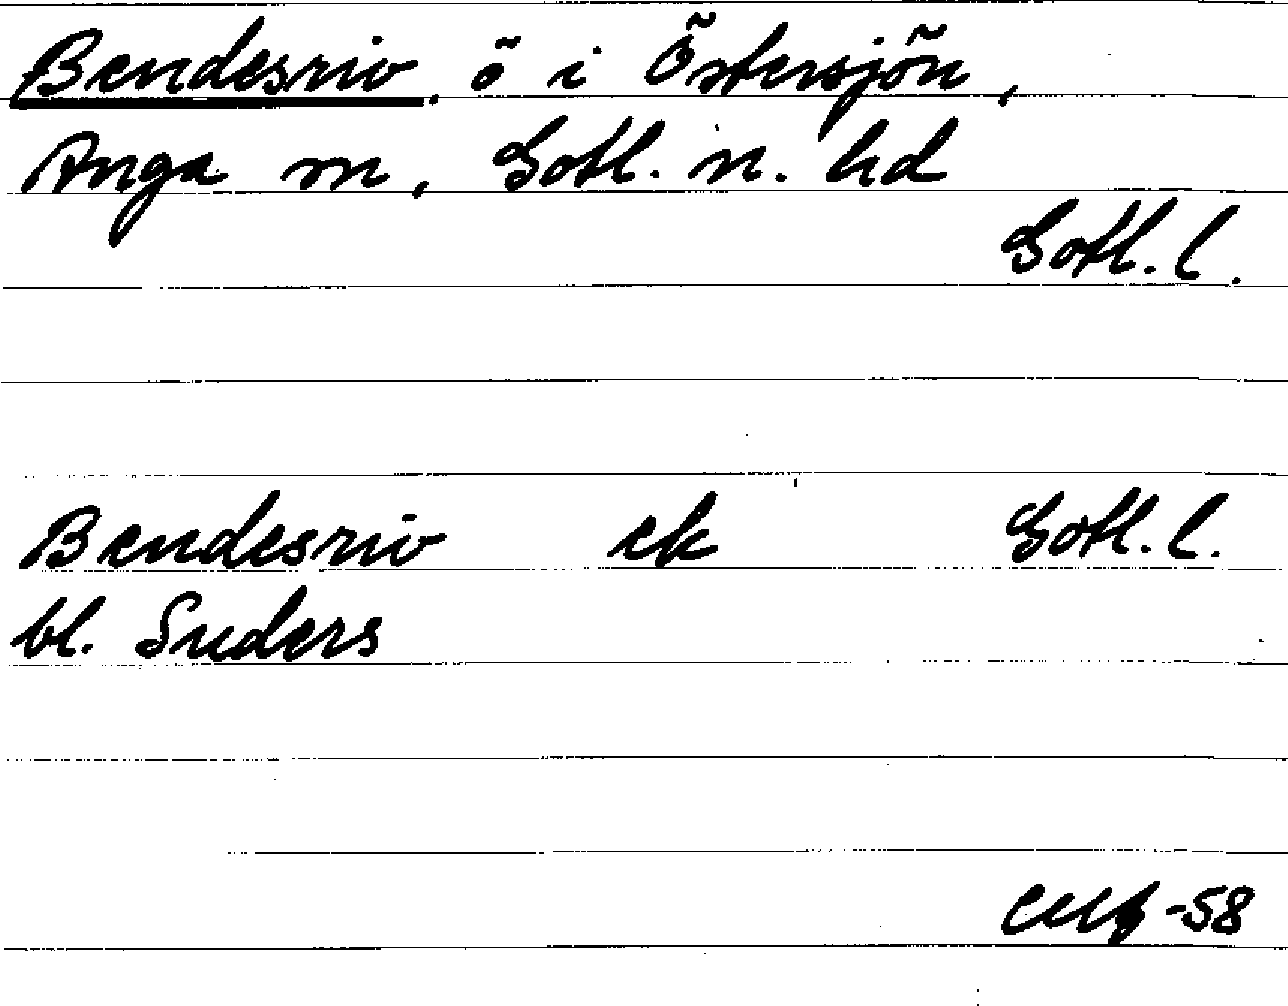 Bendesriv, ö i Östersjön,
Anga sn, Gotl. n. hd
Gotl. l.
Bendesriv ek Gotl. l.
bl. Suders
-58